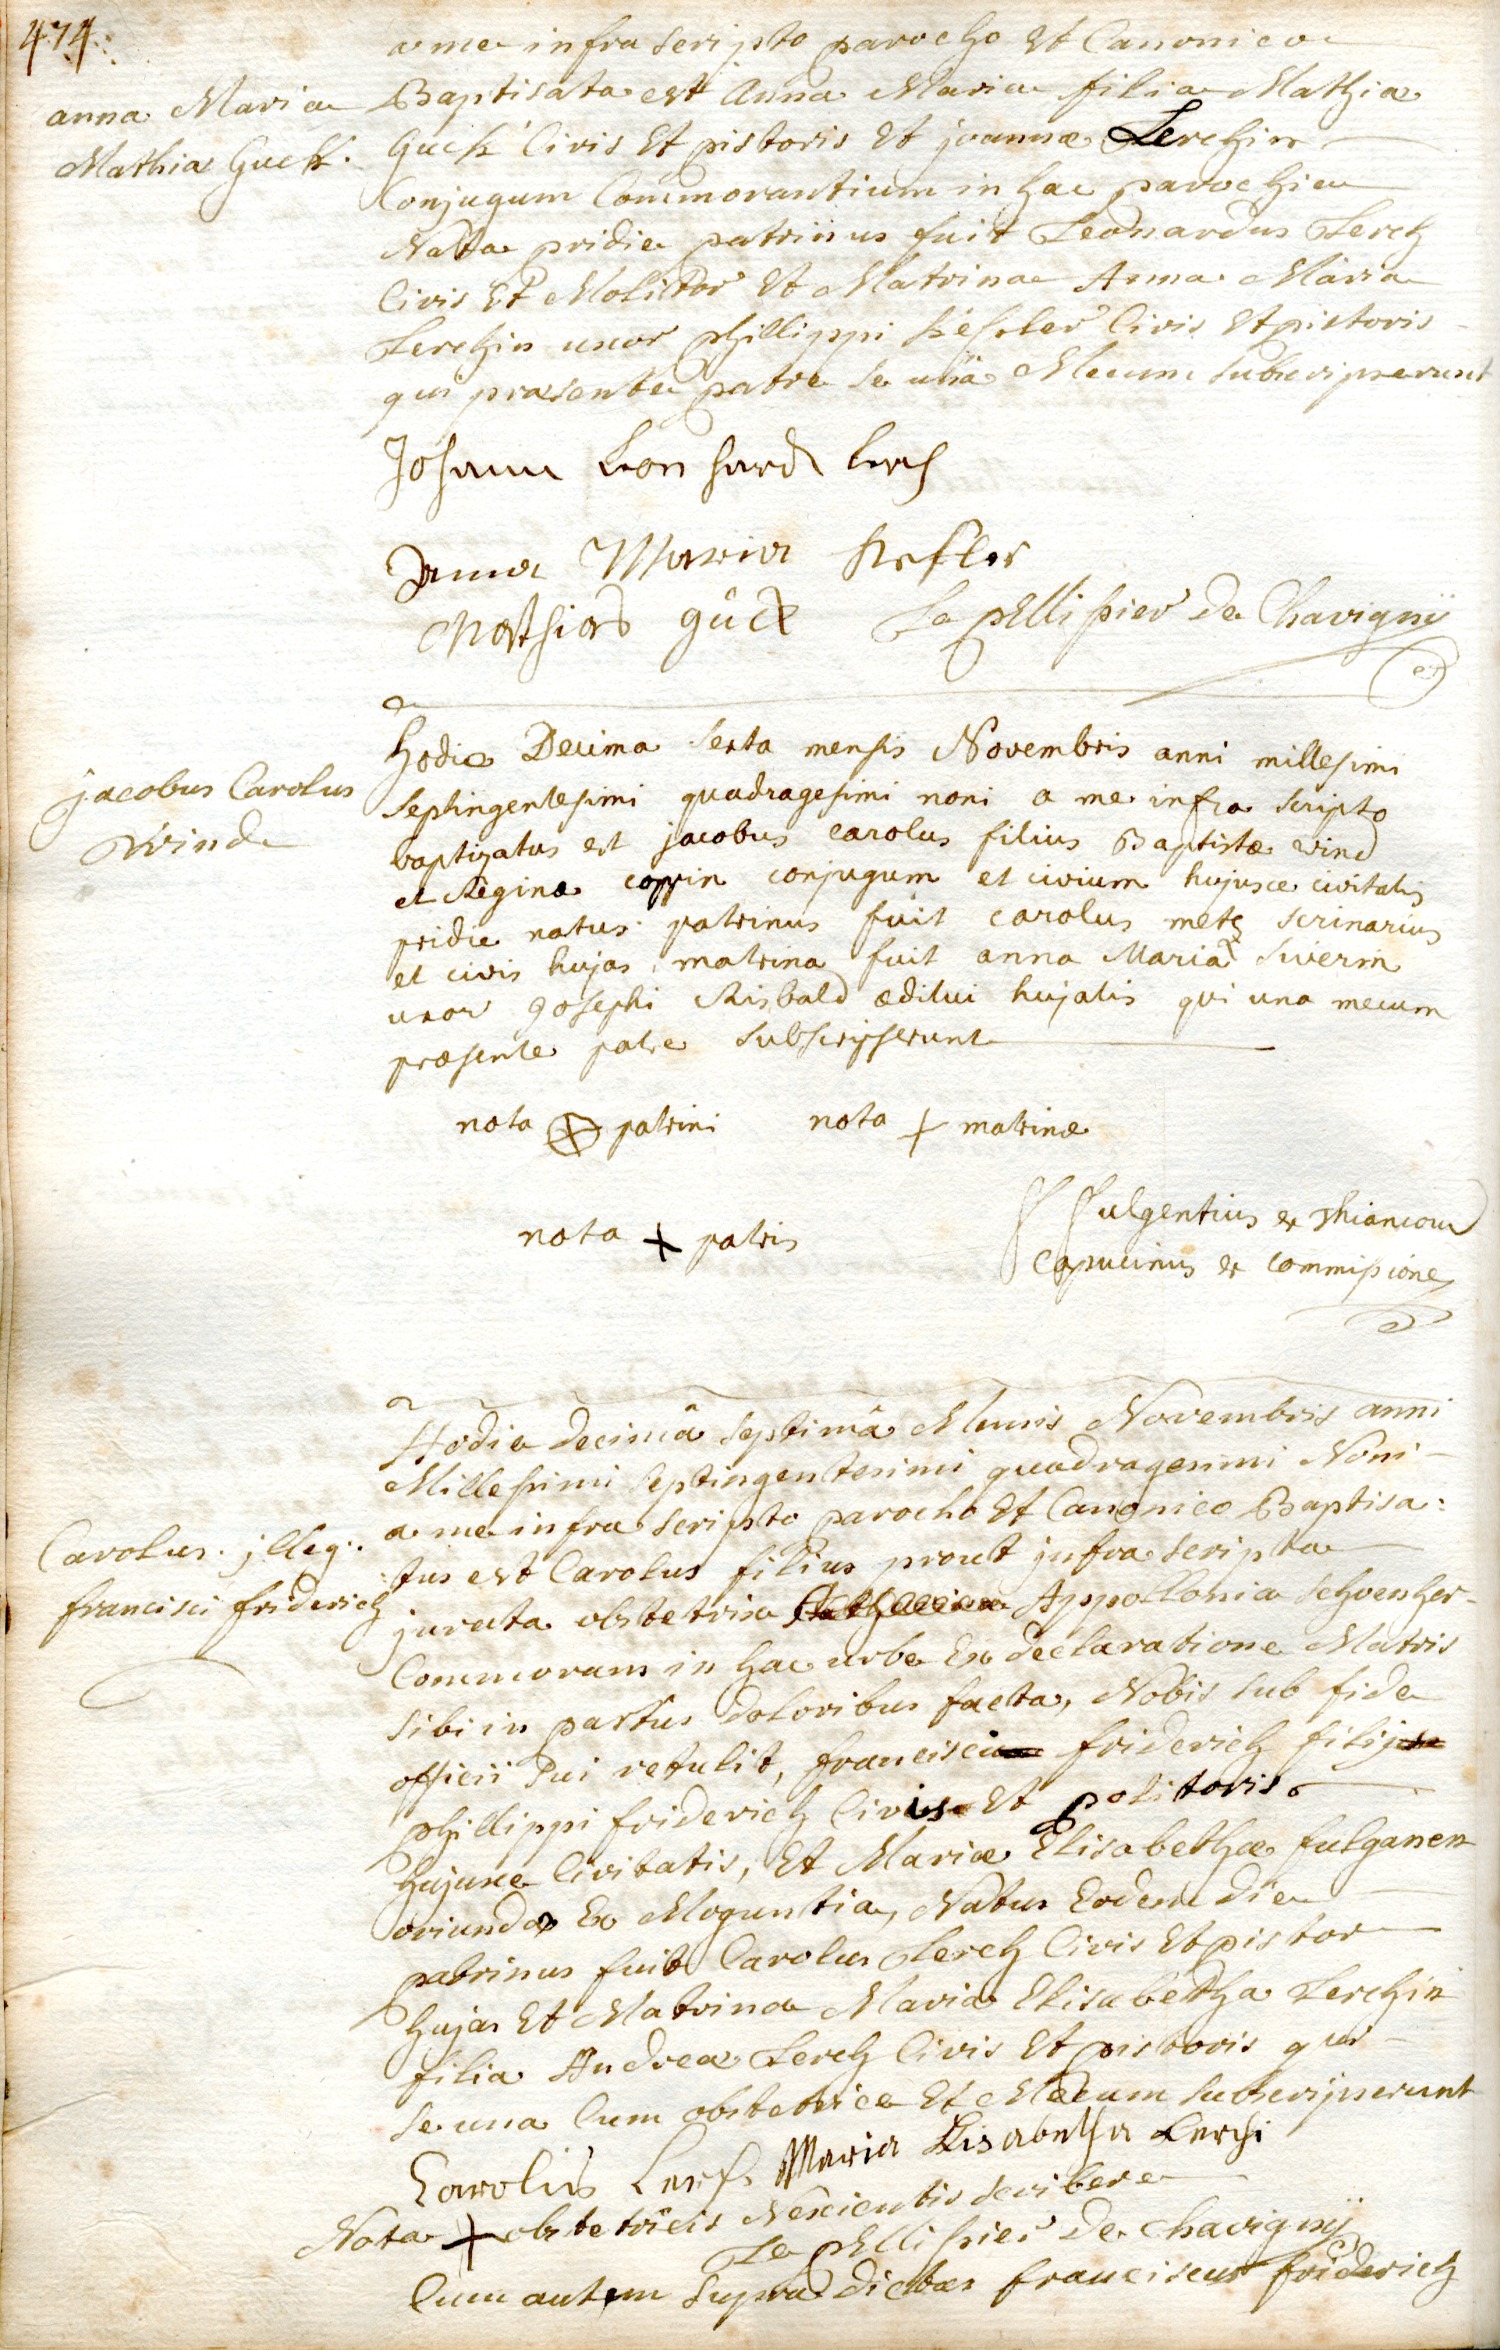 474.
a me infra scripto parocho Et Canonico
Baptisata est Anna Maria filia Mathiæ
anna Maria
Mathiæ Guck.
Guck Civis Et pistoris Et joannæ Lerchin
Conjugum Commorantium in hac parochia
Nata pridie patrinus fuit Leonardus Lerch
Civis Et Molitor Et Matrina Anna Maria
Lerchin uxor phillippi Késsler Civis Et pistoris
qui præsente patre se unà Mecum subscripserunt
Johann Leonhard Lerch
Anna Maria Kesler
Mathias gück Le pellissier De Chavignÿ
Hodie Decima sexta mensis Novembris anni millesimi
jacobus Carolus
Wind
septingentesimi quadragesimi noni a me infra scripto
baptizatus est jacobus carolus filius Baptistæ wind
et Reginæ coppin conjugum et civium hujusce civitatis
pridie natus. patrinus fuit carolus metz scrinarius
et civis hujas, matrina fuit anna Maria siverin
uxor Josephi Risbald æditui hujatis qui una mecum
præsente patre subscripserunt
nota + patrini nota + matrinæ
nota + patris
F Fulgentius ex
capucinus ex commissione
Hodie decimâ septimâ Mensis Novembris anni
Millesimi septingentesimi quadragesimi Noni
a me infra scripto parocho Et Canonico Baptisa:
Carolus. jlleg:.
francisci friderich
:tus est Carolus filius prout jnfra scripta
jurata obstetrix Appollonia schoenher
Commorans in hac urbe Ex declaratione Matris
sibi in partus doloribus facta, Nobis sub fide
officii sui retulit, francisci friderich filij
phillippi friderich Civis Et politoris
hujusce Civitatis, Et Mariæ Elisabethæ fulganen
oriundæ Ex Moguntia, Natus Eodem die
patrinus fuit Carolus Lerch Civis Et pistor
hujas Et Matrina Maria Elisabetha Lerchin
filia Andreæ Lerch Civis Et pistoris qui
se una Cum obstetrice Et Mecum subscripserunt
Carolus Lerch Maria Elisabetha Lerchi
Nota + obstetricis Nescientis scribere
Le pellissier De chavignÿ
Cum autem supra dictus franciscus friderich